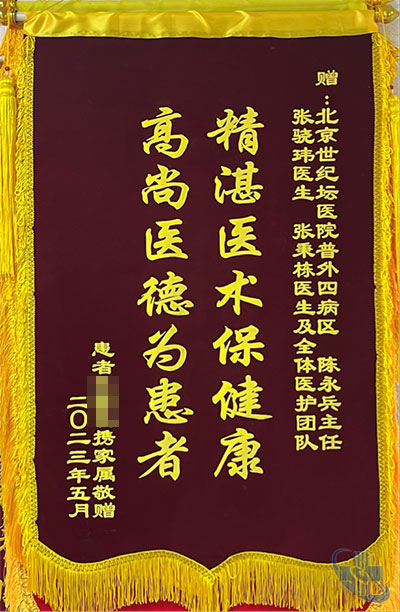 赠：北京世纪坛医院普外四病区 陈永兵主任
张骁玮医生 张秉栋医生及全体医护团队
精湛医术保健康
高尚医德为患者
患者 携家属敬赠
二〇二三年五月